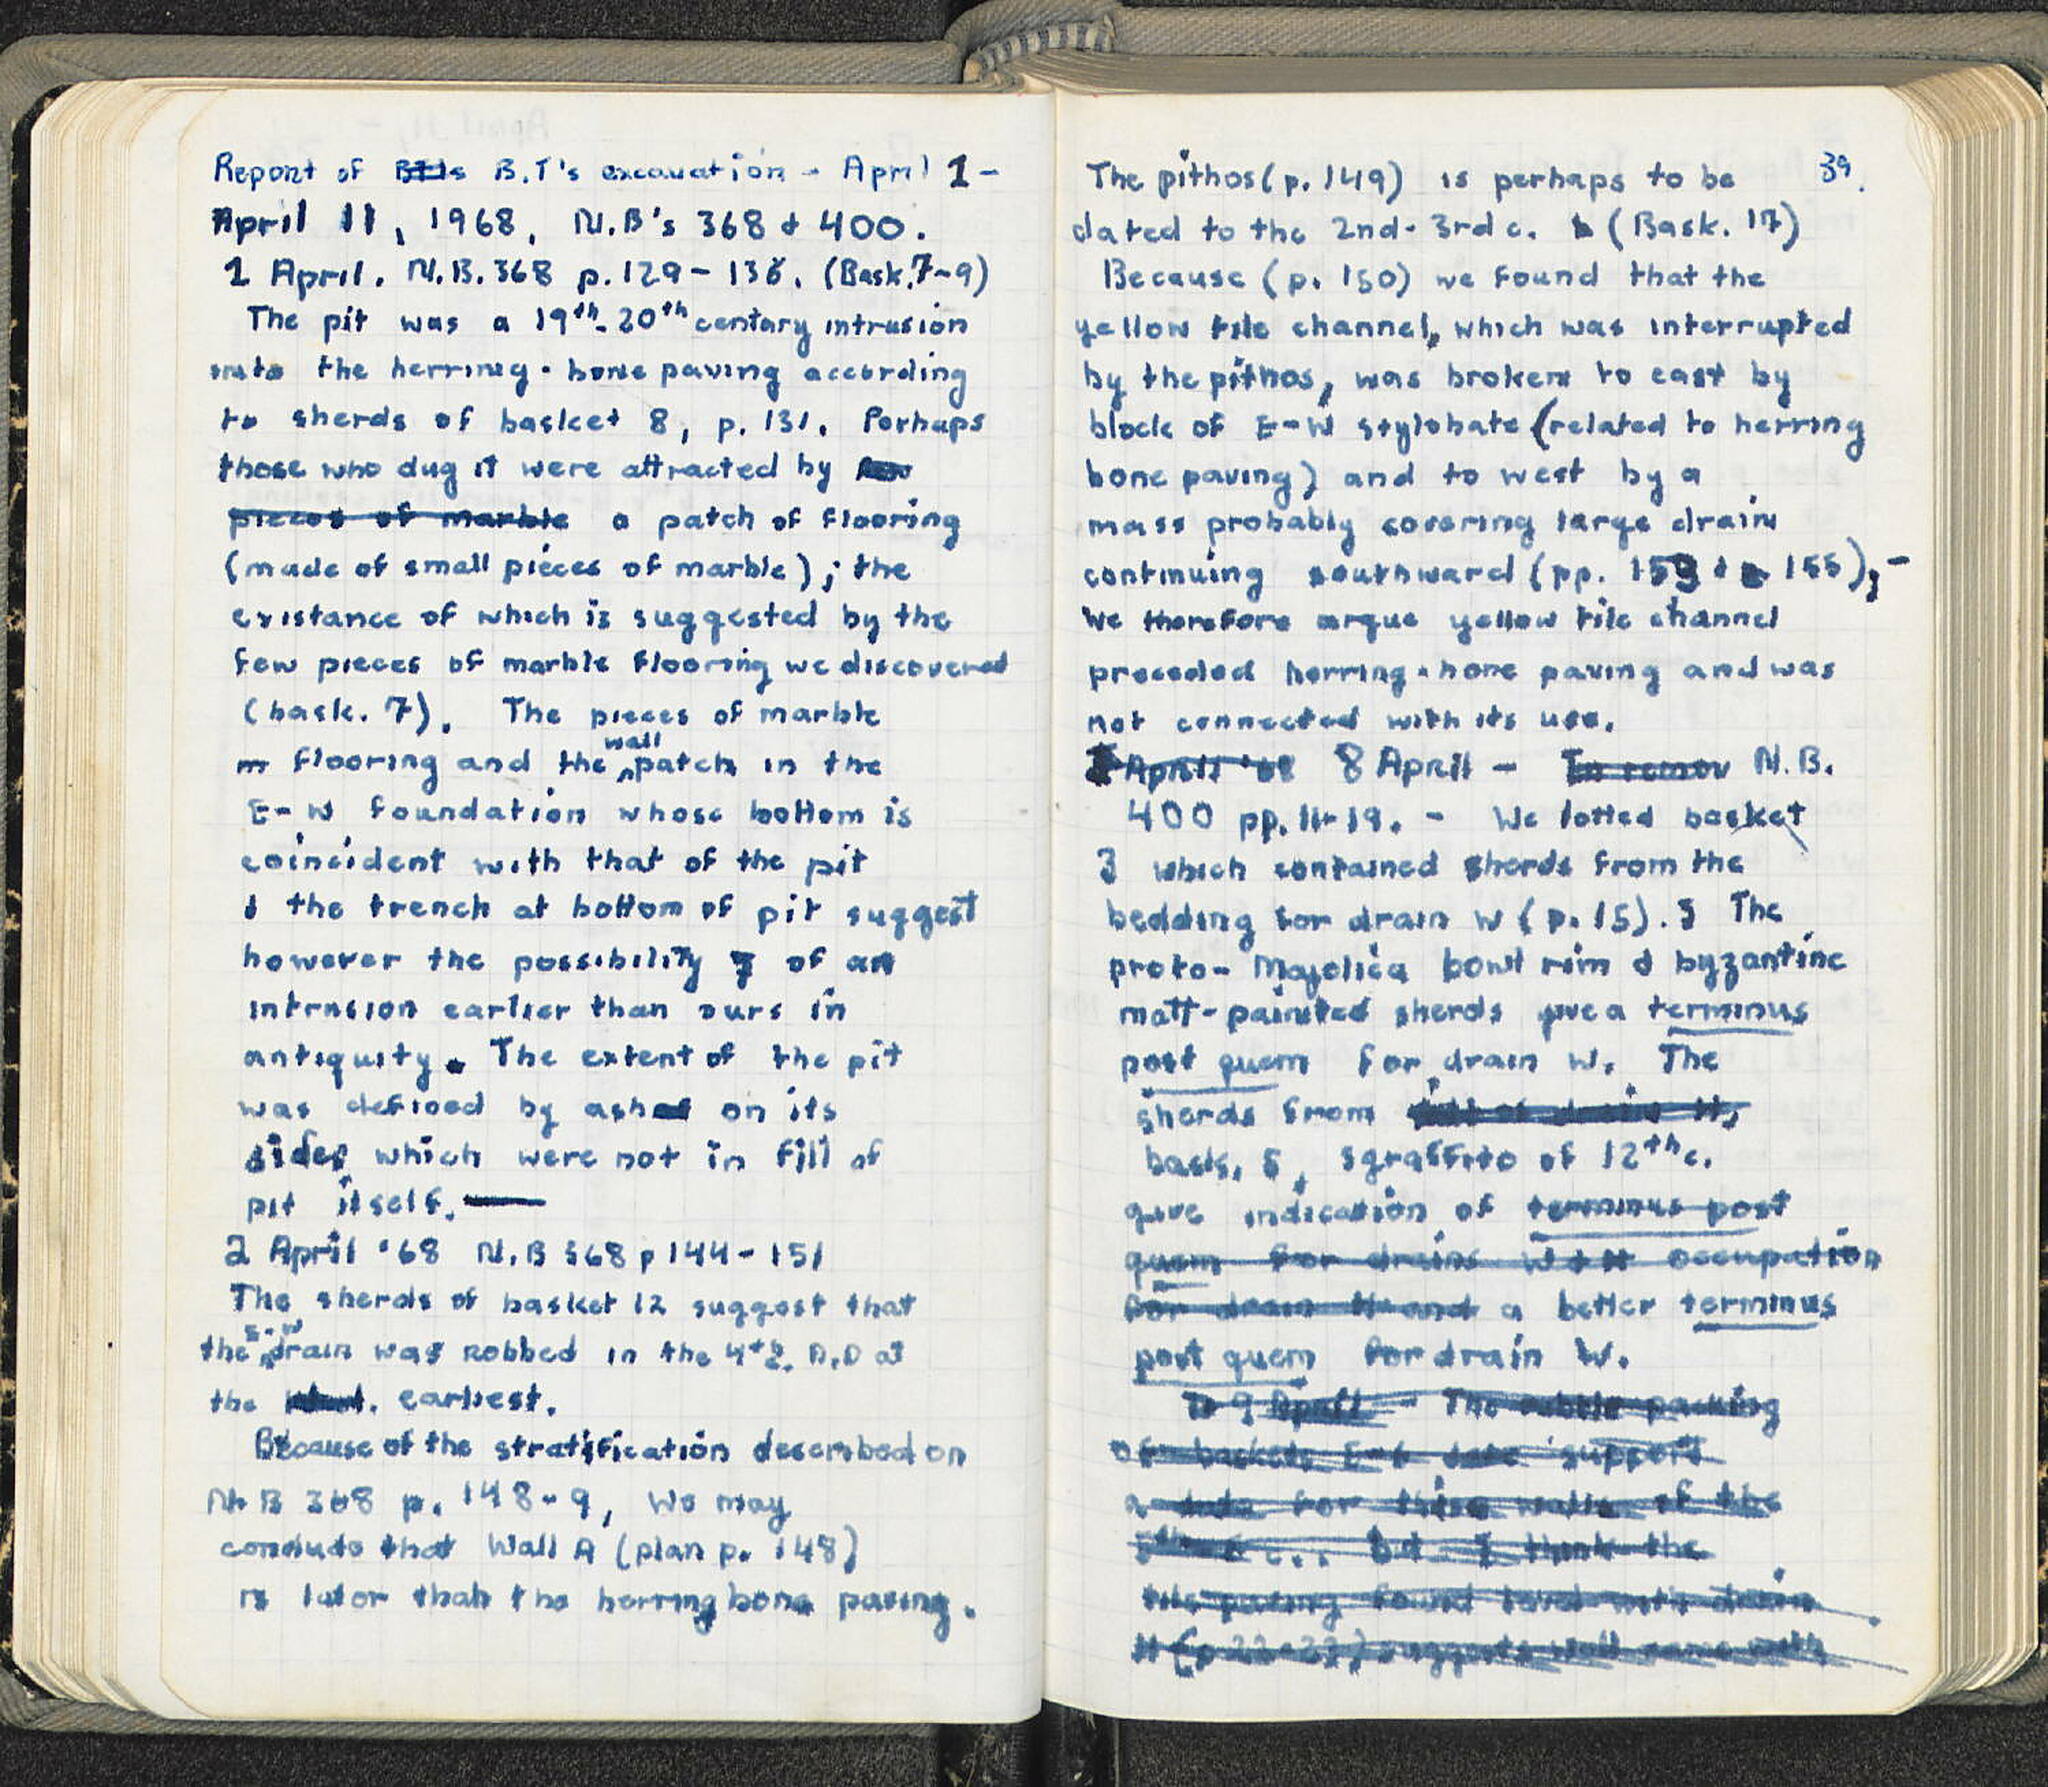 Report of B.T's excavation - April 1 -
April 11, 1968, N.B's 368 & 400.
1 April. N.B. 368 p. 129 - 136. (Bask. 7-9)
The pit was a 19th-20th century intrusion
into the herring-bone paving according
to sherds of basket 8, p. 131. Perhaps
those who dug it were attracted by
pieces of marble a patch of flooring
(made of small pieces of marble); the
existance of which is suggested by the
few pieces of marble flooring we discovered
(bask. 7). The pieces of marble
flooring and the wall patch in the
E-W foundation whose bottom is
coincident with that of the pit
& the trench at bottom of pit suggest
however the possibility of an
intrusion earlier than ours in
antiquity. The extent of the pit
was defined by ash on its
sides which were not in fill of
pit itself. —
2 April '68 N.B 368 p 144 - 151
The sherds of basket 12 suggest that
the E-W drain was robbed in the 4th c. A.D at
the earliest.
Because of the stratification described on
N.B 368 p. 148-9, we may
conclude that Wall A (plan p. 148)
is later than the herring bone paving.
39.
The pithos (p. 149) is perhaps to be
dated to the 2nd-3rd c. (Bask. 17)
Because (p. 150) we found that the
yellow tile channel, which was interrupted
by the pithos, was broken to east by
block of E-W stylobate (related to herring
bone paving) and to west by a
mass probably covering large drain
continuing southward (pp. 153 & 155), -
We therefore argue yellow tile channel
preceded herring-bone paving and was
not connected with its use.
April '68 8 April - To remov N.B.
400 pp. 11-19. - We lotted basket
3 which contained sherds from the
bedding for drain W (p. 15). The
proto-Majolica bowl rim & byzantine
matt-painted sherds give a terminus
post quem for drain W. The
sherds from
bask. 5, sgraffito of 12th c.
give indication of terminus post
quem for drains W & H occupation
for drain H and a better terminus
post quem for drain W.
9 April - The rubble packing
of baskets 5-6 date support
a date for these walls of the
c... but I think the
tile paving found level with drain
H (p 22-23) suggests wall came with